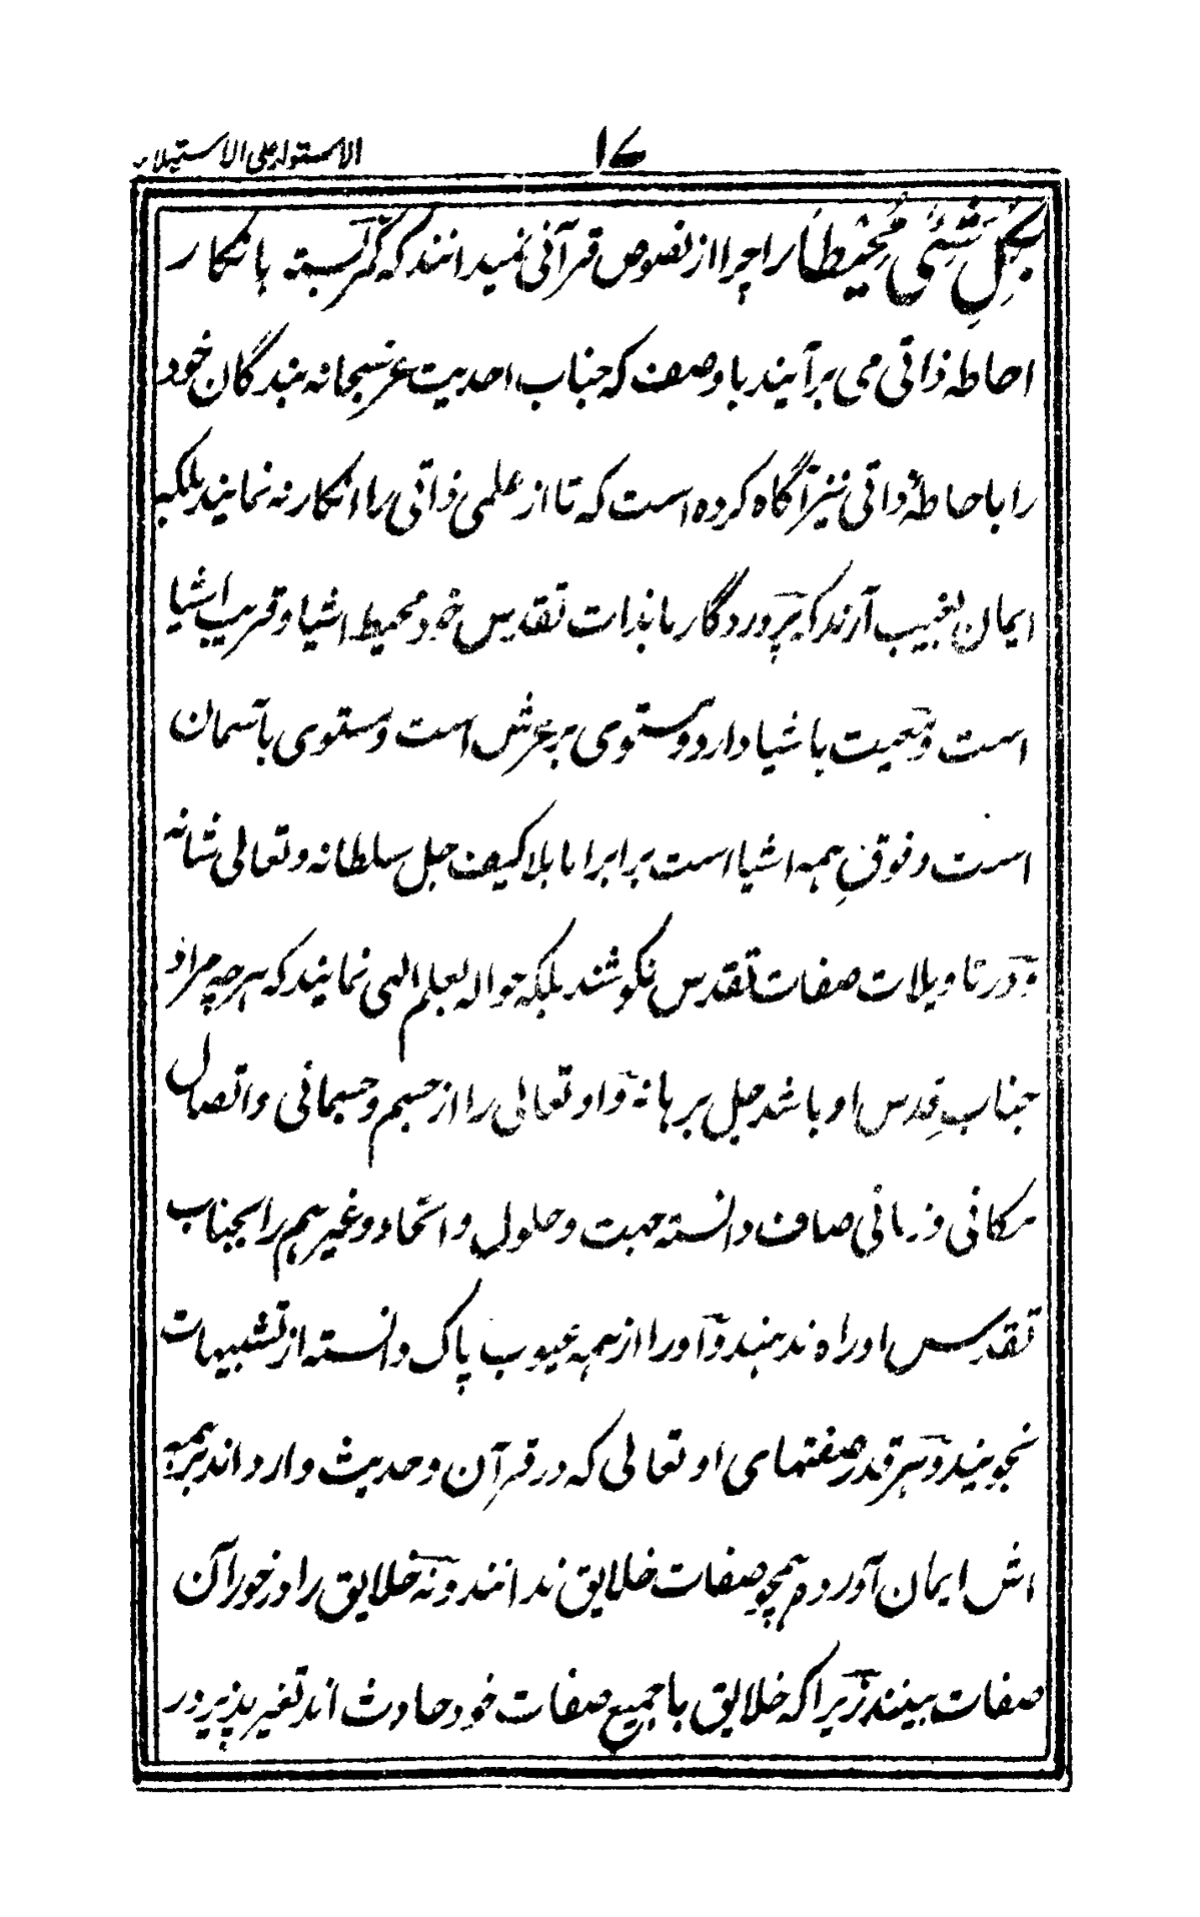 الاستواء علی الاستیلاء ۱۷
بِکُلِّ شَیْئٍ مُّحِیْطًا را چرا از نصوص قرآنی نمیدانند که کمر بسته بانکار
احاطه ذاتی می برآیند با وصف که جناب احدیت عز سبحانه بندگان خود
را باحاطهٔ ذاتی نیز آگاه کرده است که تا از علمی ذاتی را انکار نه نمایند بلکه
ایمان بغیب آرند که پروردگار ما بذات تقدس خود محیط اشیا و قریب اشیا
است و معیت باشیا دارد و مستوی بر عرش است و مستوی بآسمان
است و فوقِ همه اشیا است برابر اما بلا کیف جل سلطانه و تعالی شانه
و در تاویلات صفات تقدس نکوشند بلکه حواله بعلم الهی نمایند که هرچه مراد
جنابِ قِدس او باشد جل برهانه و او تعالی را از جسم و جسمانی و اتصال
مکانی و زمانی صاف دانسته جهت و حلول و اتحاد و غیرهم را بجناب
تقدس او راه ندهند و او را از همه عیوب پاک دانسته از تشبیهات
نجویند و هر قدر صفتهای او تعالی که در قرآن و حدیث وارد اند بر همه
اش ایمان آورده همچو صفات خلایق ندانند و نه خلایق را در خور آن
صفات بینند زیرا که خلایق با جمیع صفات خود حادث اند تغیر پذیر در